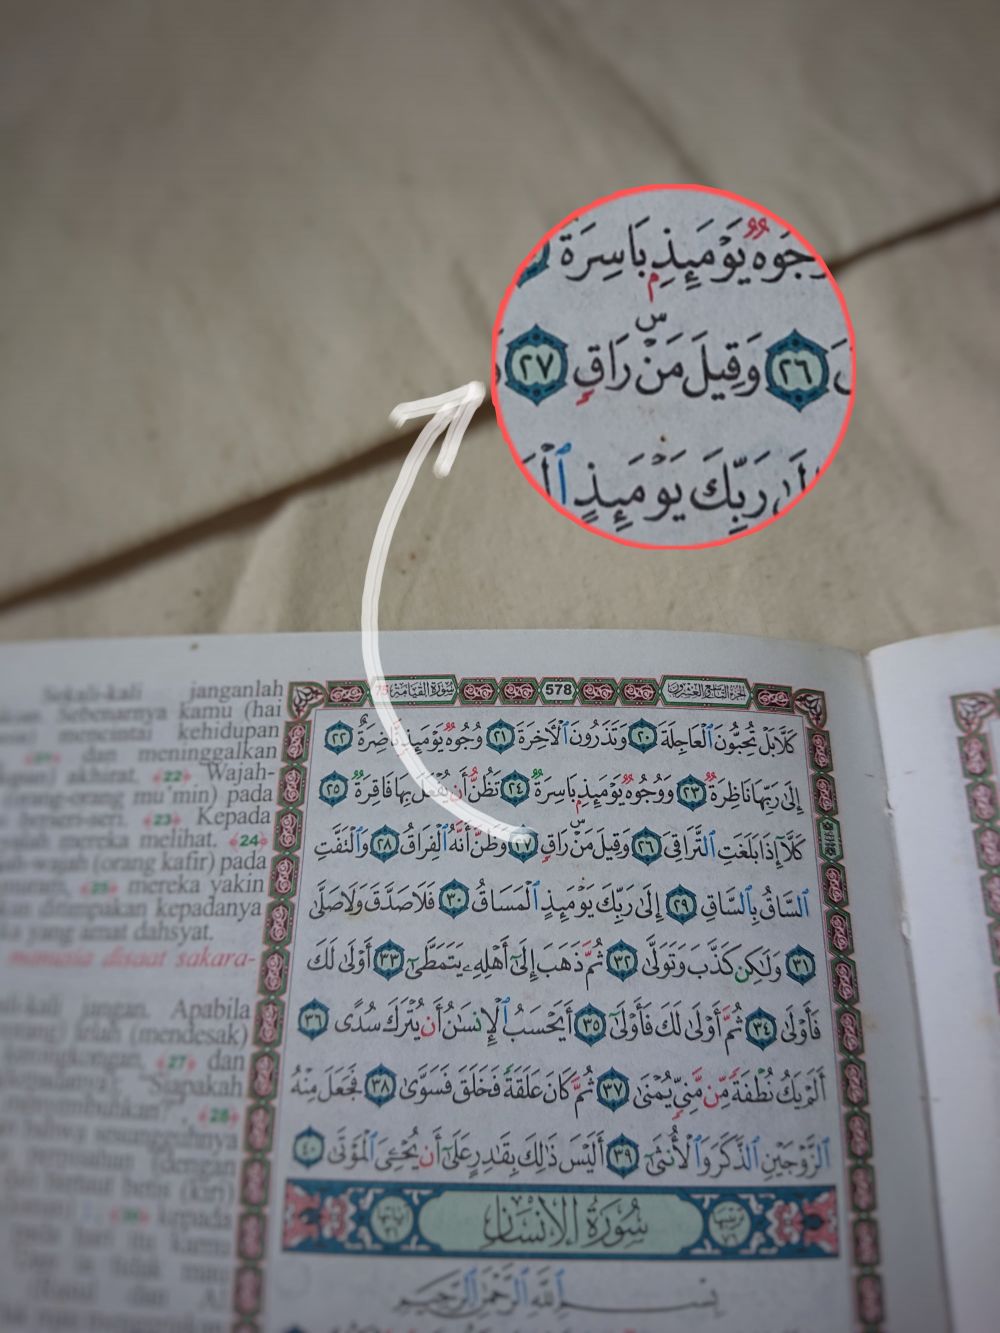 وُجُوهٌ يَوْمَئِذٍ بَاسِرَةٌ
٢٦ وَقِيلَ مَنْ ۜ رَاقٍ ٢٧
رَبِّكَ يَوْمَئِذٍ
سُورَةُ القِيَامَة 75
578
الجزء التاسع والعشرون
كَلَّا بَلْ تُحِبُّونَ ٱلْعَاجِلَةَ ٢٠ وَتَذَرُونَ ٱلْأٓخِرَةَ ٢١ وُجُوهٌ يَوْمَئِذٍ نَّاضِرَةٌ ٢٢
إِلَىٰ رَبِّهَا نَاظِرَةٌ ٢٣ وَوُجُوهٌ يَوْمَئِذٍ بَاسِرَةٌ ٢٤ تَظُنُّ أَن يُفْعَلَ بِهَا فَاقِرَةٌ ٢٥
كَلَّآ إِذَا بَلَغَتِ ٱلتَّرَاقِيَ ٢٦ وَقِيلَ مَنْ ۜ رَاقٍ ٢٧ وَظَنَّ أَنَّهُ ٱلْفِرَاقُ ٢٨ وَٱلْتَفَّتِ
ٱلسَّاقُ بِٱلسَّاقِ ٢٩ إِلَىٰ رَبِّكَ يَوْمَئِذٍ ٱلْمَسَاقُ ٣٠ فَلَا صَدَّقَ وَلَا صَلَّىٰ
٣١ وَلَٰكِن كَذَّبَ وَتَوَلَّىٰ ٣٢ ثُمَّ ذَهَبَ إِلَىٰٓ أَهْلِهِۦ يَتَمَطَّىٰٓ ٣٣ أَوْلَىٰ لَكَ
فَأَوْلَىٰ ٣٤ ثُمَّ أَوْلَىٰ لَكَ فَأَوْلَىٰٓ ٣٥ أَيَحْسَبُ ٱلْإِنسَٰنُ أَن يُتْرَكَ سُدًى ٣٦
أَلَمْ يَكُ نُطْفَةً مِّن مَّنِيٍّ يُمْنَىٰ ٣٧ ثُمَّ كَانَ عَلَقَةً فَخَلَقَ فَسَوَّىٰ ٣٨ فَجَعَلَ مِنْهُ
ٱلزَّوْجَيْنِ ٱلذَّكَرَ وَٱلْأُنثَىٰٓ ٣٩ أَلَيْسَ ذَٰلِكَ بِقَٰدِرٍ عَلَىٰٓ أَن يُحْـِۧيَ ٱلْمَوْتَىٰ ٤٠
سُورَةُ الإِنسَانِ
بِسْمِ ٱللَّهِ ٱلرَّحْمَٰنِ ٱلرَّحِيمِ
Sekali-kali janganlah
Sebenarnya kamu (hai
mencintai kehidupan
dan meninggalkan
akhirat. 22 Wajah-
orang-orang mu'min) pada
berseri-seri. 23 Kepada
mereka melihat. 24
wajah (orang kafir) pada
25 mereka yakin
ditimpakan kepadanya
yang amat dahsyat.
manusia disaat sakara-
jangan. Apabila
telah (mendesak)
kerongkongan, 27 dan
"Siapakah
28
bahwa sesungguhnya
(dengan
betis (kiri)
kepada